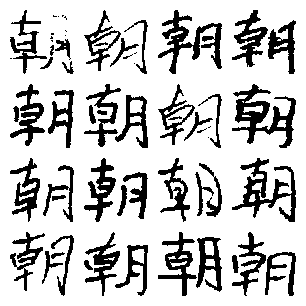 朝朝朝朝
朝朝朝朝
朝朝朝朝
朝朝朝朝